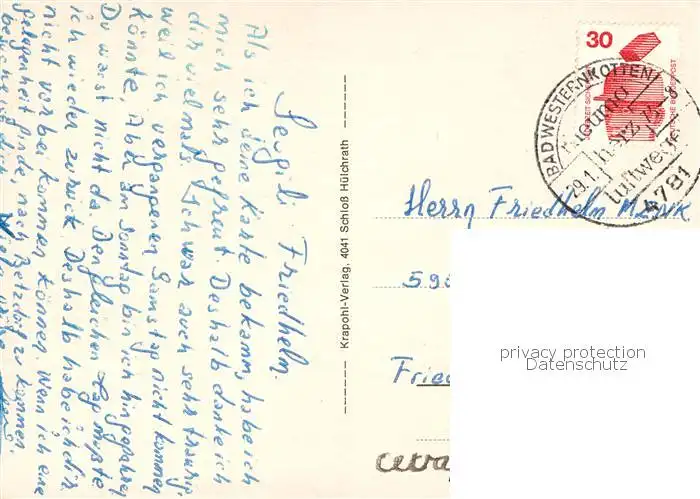 Seugil. Friedhelm.
Als ich deine Karte bekamm, habe ich
mich sehr gefreut. Deshalb danke ich
dir vielmals. Ich war auch sehr traurig,
weil ich vergangenen Samstag nicht kommen
könnte, Aber am Sonntag bin ich hingefahren,
Du warst nicht da. Den gleichen Tag mußte
ich wieder zurück. Deshalb habe ich dir
nicht vorbei kommen können. Wenn ich eine
Gelegenheit finde nach Betzdorf zu kommen
besuche ich dich.
Krapohl-Verlag, 4041 Schloß Hülchrath
30
DEUTSCHE BUNDESPOST
BAD WESTERNKOTTEN
Gesunde
herz
luftwege
29.1.
4781
Herrn Friedhelm MENK
59
Fried
privacy protection
Datenschutz